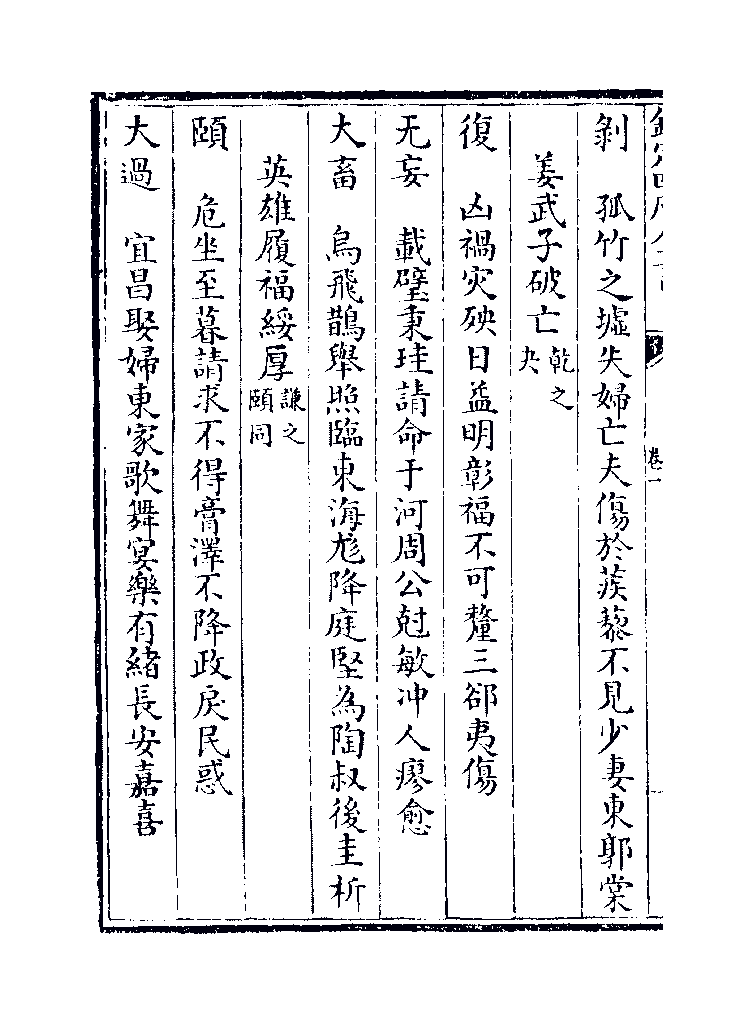 剝　孤竹之墟失婦亡夫傷於蒺藜不見少妻東郭棠
姜武子破亡乾之夬
復　凶禍災殃日益明彰福不可釐三郤夷傷
无妄　載璧秉珪請命于河周公尅敏冲人瘳愈
大畜　烏飛鵲舉照臨東海尨降庭堅為陶叔後圭析
英雄履福綏厚謙之頤同
頤　危坐至暮請求不得膏澤不降政戾民惑
大過　宜昌娶婦東家歌舞宴樂有緒長安嘉喜
卷一